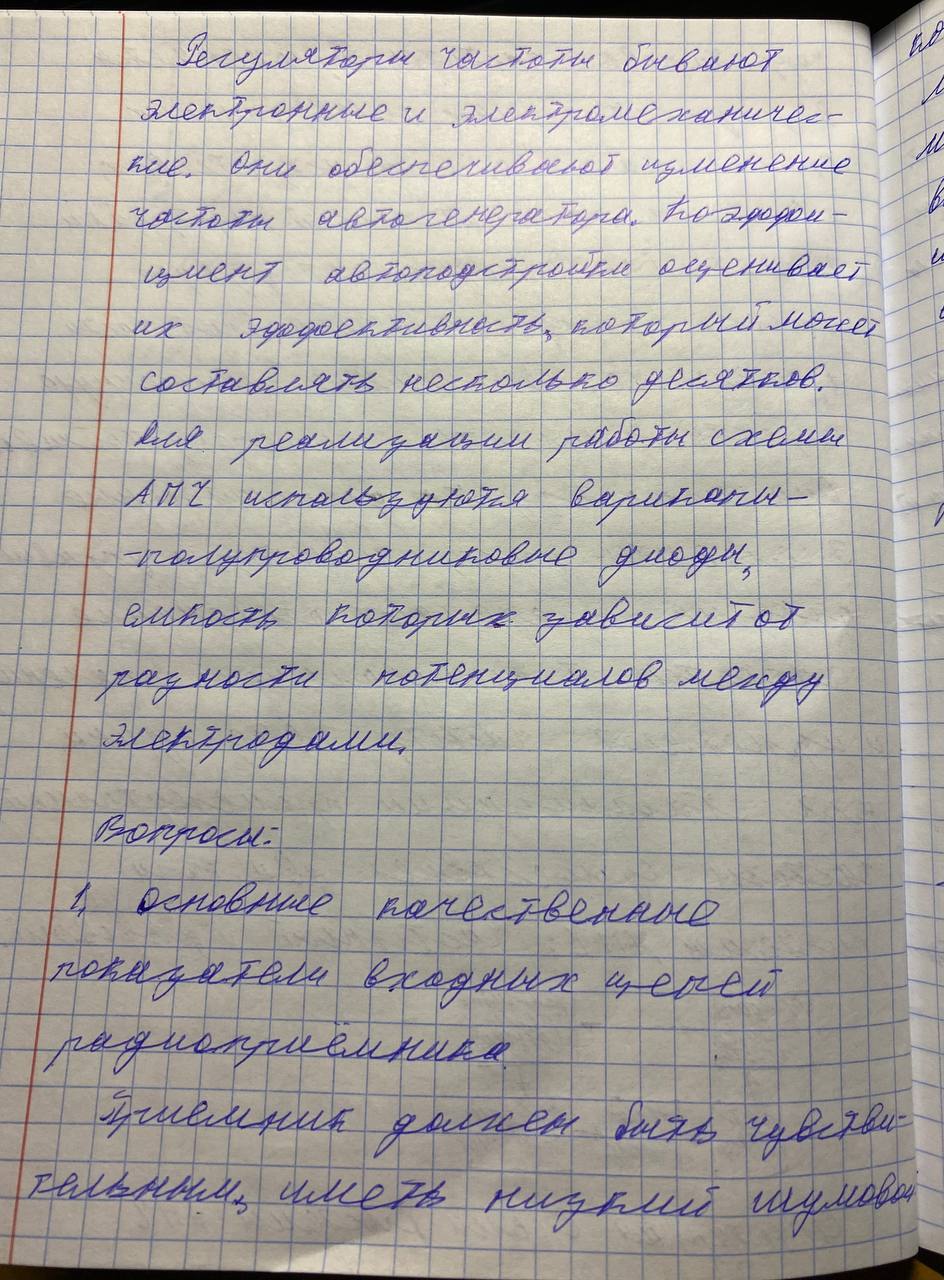 Регуляторы частоты бывают
электронные и электромеханичес-
кие. Они обеспечивают изменение
частоты автогенератора. Коэффи-
циент автоподстройки оценивает
их эффективность, который может
составлять несколько десятков.
Для реализации работы схемы
АПЧ используются варикапы-
-полупроводниковые диоды,
емкость которых зависит от
разности потенциалов между
электродами.
Вопросы:
1, основные качественные
показатели входных цепей
радиоприёмника
Приемник должен быть чувстви-
тельным, иметь низкий шумовой